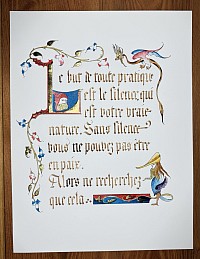 Le but de toute pratique
est le silence, qui
est votre vraie
nature. Sans silence
vous ne pouvez pas être
en paix.
Alors ne recherchez
que cela.